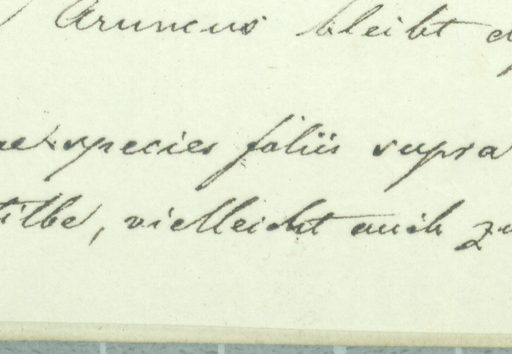 Aruncus bleibt
species foliis supra
tilbe, vielleicht auch zu